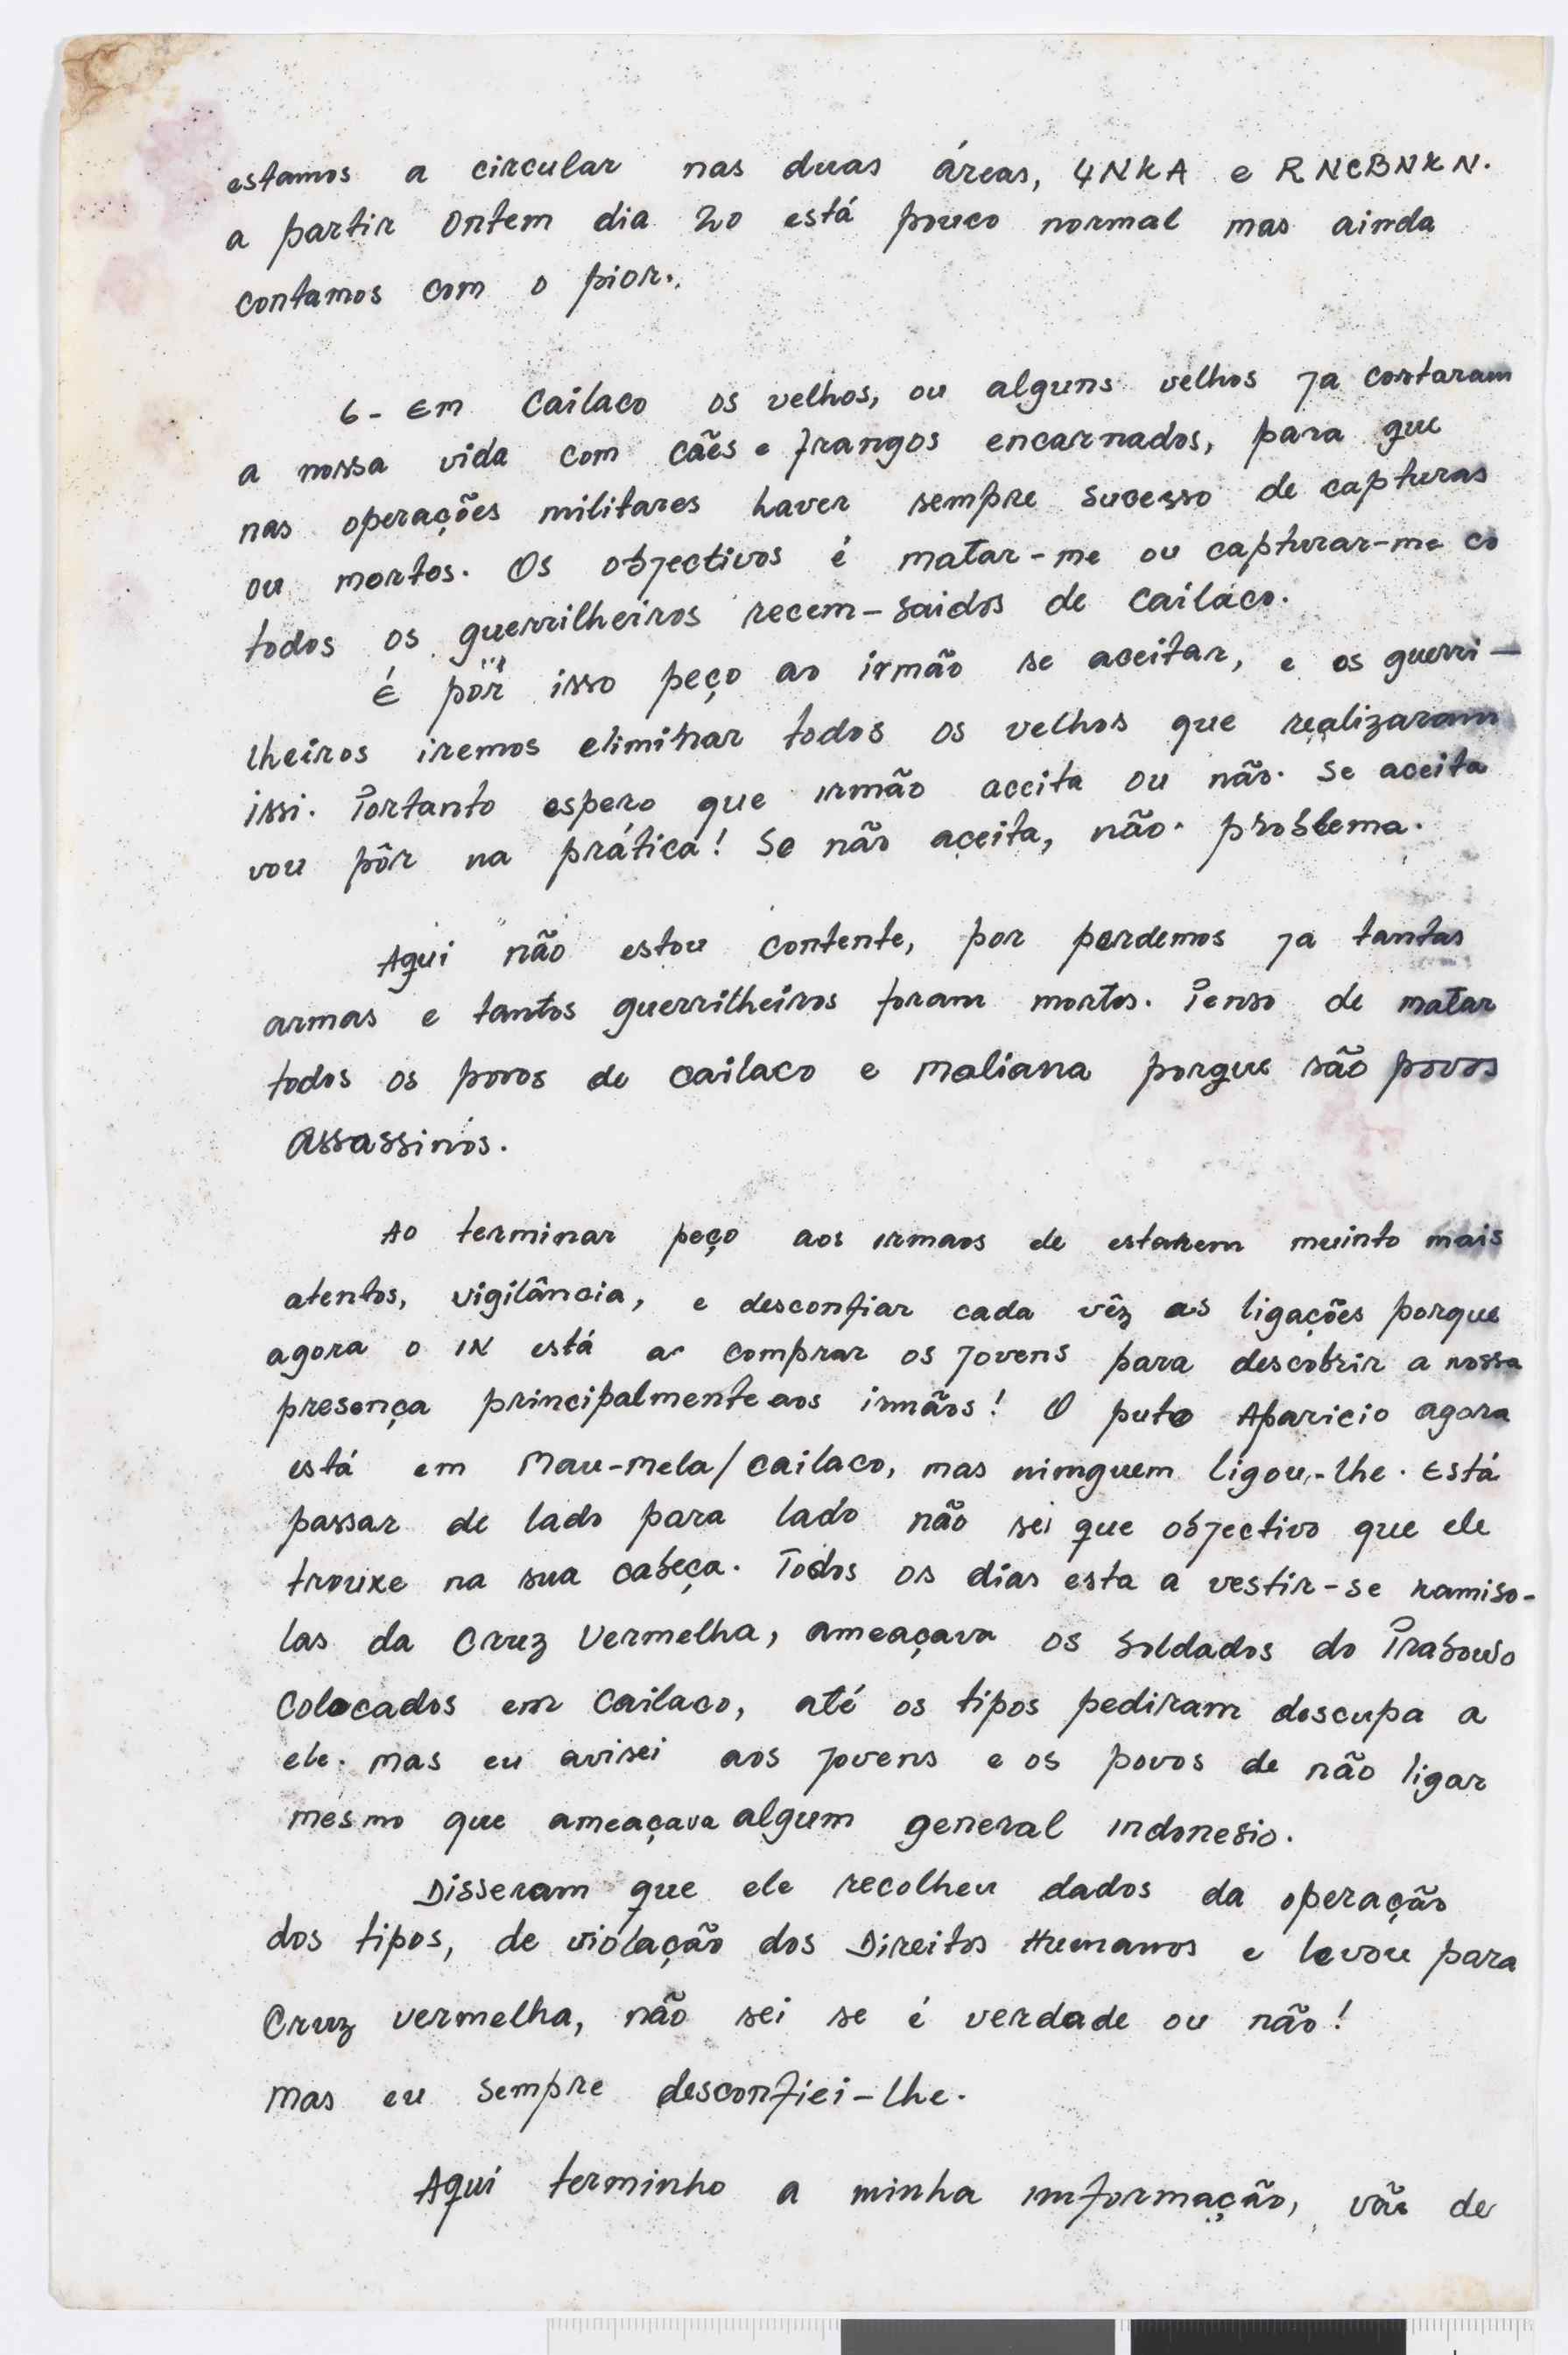 estamos a circular nas duas áreas, 4NKA e RNCBNKN.
a partir Ontem dia 20 está pouco normal mas ainda
contamos com o pior.
6- Em Cailaco os velhos, ou alguns velhos ja cortaram
a nossa vida com cães e frangos encarnados, para que
nas operações militares haver sempre sucesso de capturas
ou mortos. Os objectivos é matar-me ou capturar-me co
todos os guerrilheiros recem-saidos de Cailaco.
É por isso peço ao irmão se aceitar, e os guerri-
lheiros iremos eliminar todos os velhos que realizaram
issi. Portanto espero que irmão aceita ou não. Se aceita
vou pôr na prática! Se não aceita, não. problema.
Aqui não estou contente, por perdemos ja tantas
armas e tantos guerrilheiros foram mortos. Penso de matar
todos os povos de Cailaco e Maliana porque são povos
Assassinos.
Ao terminar peço aos irmaos de estarem muinto mais
atentos, vigilância, e desconfiar cada vêz as ligações porque
agora o IN está a comprar os jovens para descobrir a nossa
presença principalmente aos irmãos! O puto Aparicio agora
está em Mau-mela/Cailaco, mas nimguem ligou-lhe. Está
passar de lado para lado não sei que objectivo que ele
trouxe na sua cabeça. Todos os dias esta a vestir-se kamiso-
las da Cruz Vermelha, ameaçava os Soldados do Prabowo
colocados em Cailaco, até os tipos pediram descupa a
ele. mas eu avisei aos jovens e os povos de não ligar
mesmo que ameaçava algum general indonesio.
Disseram que ele recolheu dados da operação
dos tipos, de violação dos Direitos Humanos e levou para
Cruz vermelha, não sei se é verdade ou não!
Mas eu sempre desconfiei-lhe.
Aqui terminho a minha imformação, vão de